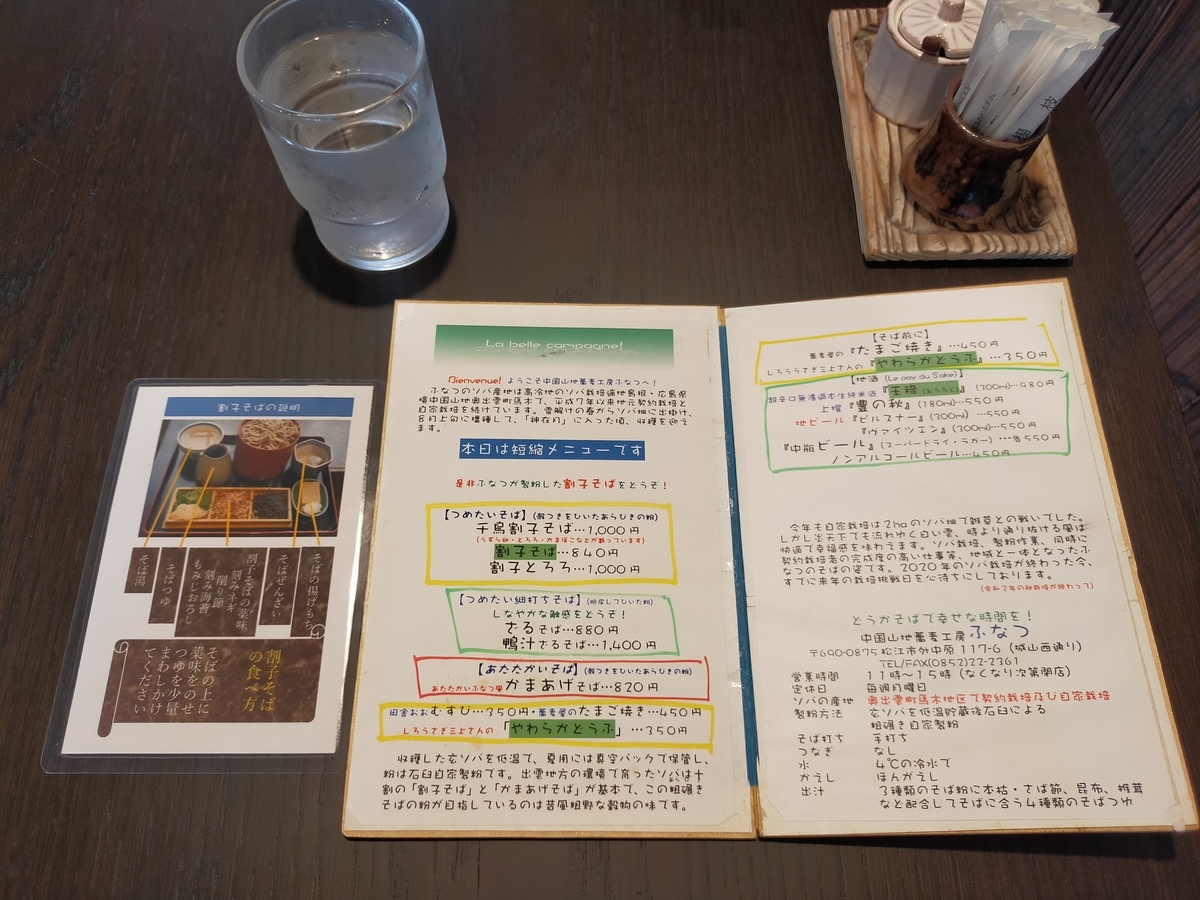 割子そばの説明
そばの揚げもち
そばぜんざい
割子そばの薬味
刻みネギ
削り節
刻み海苔
もみじおろし
そばつゆ
そば湯
割子そば
の食べ方
そばの上に
薬味をのせ
つゆを少量
まわしかけ
てください
La belle campagne!
Bienvenue! ようこそ中国山地蕎麦工房ふなつへ!
ふなつのソバ産地は高冷地のソバ栽培適地島根・広島県
境中国山地奥出雲町馬木で、平成7年以来地元契約栽培と
自家栽培を続けています。雪解けの春からソバ畑に出掛け、
8月上旬に播種して、「神在月」に入った頃、収穫を迎え
ます。
本日は短縮メニューです
是非ふなつが製粉した割子そばをどうぞ!
【つめたいそば】(殻つきをひいたあらびきの粉)
千鳥割子そば…1,000円
(うずら卵・とろろ・かまぼこなどが載っています)
割子そば…840円
割子とろろ…1,000円
【つめたい細打ちそば】(脱皮してひいた粉)
しなやかな触感をどうぞ!
ざるそば…880円
鴨汁ざるそば…1,400円
【あたたかいそば】(殻つきをひいたあらびきの粉)
あたたかいふなつ風 かまあげそば…820円
田舎おおむすび…350円・蕎麦屋のたまご焼き…450円
しろうさぎ三上さんの「やわらかとうふ」…350円
収穫した玄ソバを低温で、夏用には真空パックで保管し、
粉は石臼自家製粉です。出雲地方の環境で育ったソバは十
割の「割子そば」と「かまあげそば」が基本で、この粗碾き
そばの粉が目指しているのは昔風粗野な穀物の味です。
【そば前に】
蕎麦屋の『たまご焼き』…450円
しろうさぎ三上さんの『やわらかとうふ』…350円
【地酒(Le pay du Sake)】
超辛口無濾過本生純米酒『王祿(おうろく)』(300ml)…980円
上撰『豊の秋』(180ml)…550円
地ビール『ピルスナー』(300ml)…550円
『ヴァイツェン』(300ml)…550円
『中瓶ビール』(スーパードライ・ラガー)…各550円
ノンアルコールビール…450円
今年も自家栽培は2haのソバ畑で雑草との戦いでした。
しかし炎天下でも流れゆく白い雲、時より通り抜ける風は
快適で幸福感を味わえます。ソバ栽培、製粉作業、同時に
契約栽培者の完成度の高い仕事等、地域と一体となったふ
なつのそばの姿です。2020年のソバ栽培が終わった今、
すでに来年の栽培挑戦日を心待ちにしております。
(令和2年の栽培が終わって)
とうかそばで幸せな時間を!
中国山地蕎麦工房 ふなつ
〒690-0875 松江市外中原117-6(城山西通り)
TEL/FAX(0852)22-2361
営業時間 11時～15時(なくなり次第閉店)
定休日 毎週月曜日
ソバの産地 奥出雲町馬木地区で契約栽培及び自家栽培
製粉方法 玄ソバを低温貯蔵後石臼による
粗碾き自家製粉
そば打ち 手打ち
つなぎ なし
水 4℃の冷水で
かえし ほんがえし
出汁 3種類のそば粉に本枯・さば節、昆布、椎茸
など配合してそばに合う4種類のそばつゆ